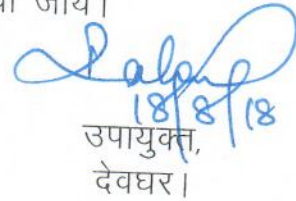 जाय।
18/8/18
उपायुक्त,
देवघर।